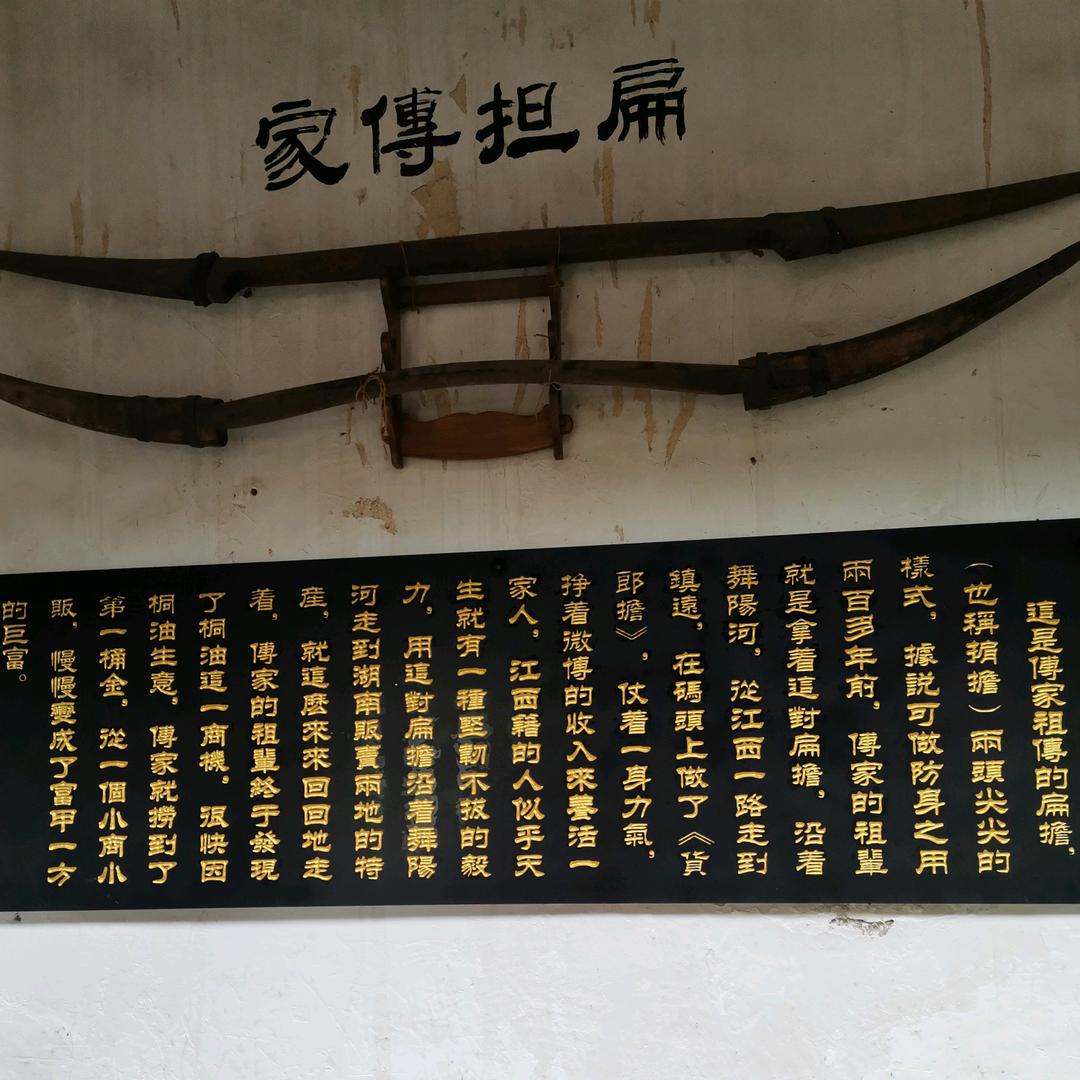 扁担傳家
這是傳家祖傳的扁擔，
（也稱捎擔）兩頭尖尖的
樣式，據説可做防身之用
兩百多年前，傳家的祖輩
就是拿着這對扁擔，沿着
舞陽河，從江西一路走到
鎮遠，在碼頭上做了《貨
郎擔》，仗着一身力氣，
挣着微博的收入來養活一
家人，江西藉的人似乎天
生就有一種堅韌不拔的毅
力，用這對扁擔沿着舞陽
河走到湖南販賣兩地的特
産，就這麽來來回回地走
着，傳家的祖輩終于發現
了桐油這一商機，很快因
桐油生意，傳家就撈到了
第一桶金，從一個小商小
販，慢慢變成了富甲一方
的巨富。